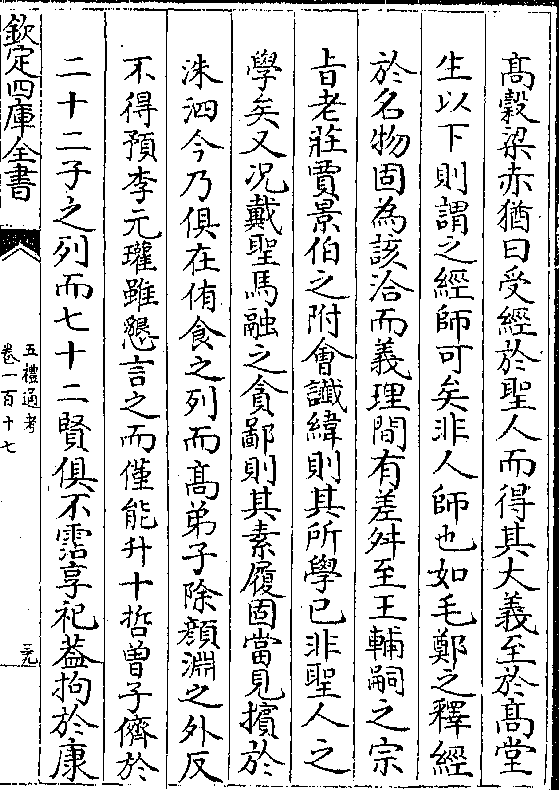 高穀梁赤猶曰受經於聖人而得其大義至於高堂
生以下則謂之經師可矣非人師也如毛鄭之釋經
於名物固為該洽而義理間有差舛至王輔嗣之宗
㫖老莊賈景伯之附會讖緯則其所學已非聖人之
學矣又況戴聖馬融之貪鄙則其素履固當見擯於
洙泗今乃俱在侑食之列而高弟子除顔淵之外反
不得預李元瓘雖懇言之而僅能升十哲曾子儕於
二十二子之列而七十二賢俱不霑享祀葢拘於康
欽定四庫全書
五禮通考
卷一百十七
二九